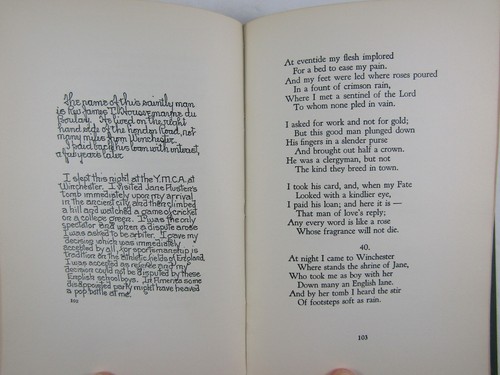 The name of this saintly man
is Rev. James
Boulay. He lived on the right
hand side of the London Road, not
many miles from Winchester.
I paid back his loan with interest,
a few years later.
I slept this night at the Y.M.C.A. at
Winchester. I visited Jane Austen's
tomb immediately upon my arrival
in the ancient city, and then climbed
a hill and watched a game of cricket
on a college green. I was the only
spectator and when a dispute arose
I was asked to be arbiter. I gave my
decision which was immediately
accepted by all, for sportsmanship is
tradition on the athletic fields of England.
I was accepted as referee and my
decision could not be disputed by these
English schoolboys. In America some
disappointed party might have heaved
a pop bottle at me.
102
At eventide my flesh implored
For a bed to ease my pain.
And my feet were led where roses poured
In a fount of crimson rain,
Where I met a sentinel of the Lord
To whom none pled in vain.
I asked for work and not for gold;
But this good man plunged down
His fingers in a slender purse
And brought out half a crown.
He was a clergyman, but not
The kind they breed in town.
I took his card, and, when my Fate
Looked with a kindlier eye,
I paid his loan; and here it is —
That man of love's reply;
Any every word is like a rose
Whose fragrance will not die.
40.
At night I came to Winchester
Where stands the shrine of Jane,
Who took me as boy with her
Down many an English lane.
And by her tomb I heard the stir
Of footsteps soft as rain.
103